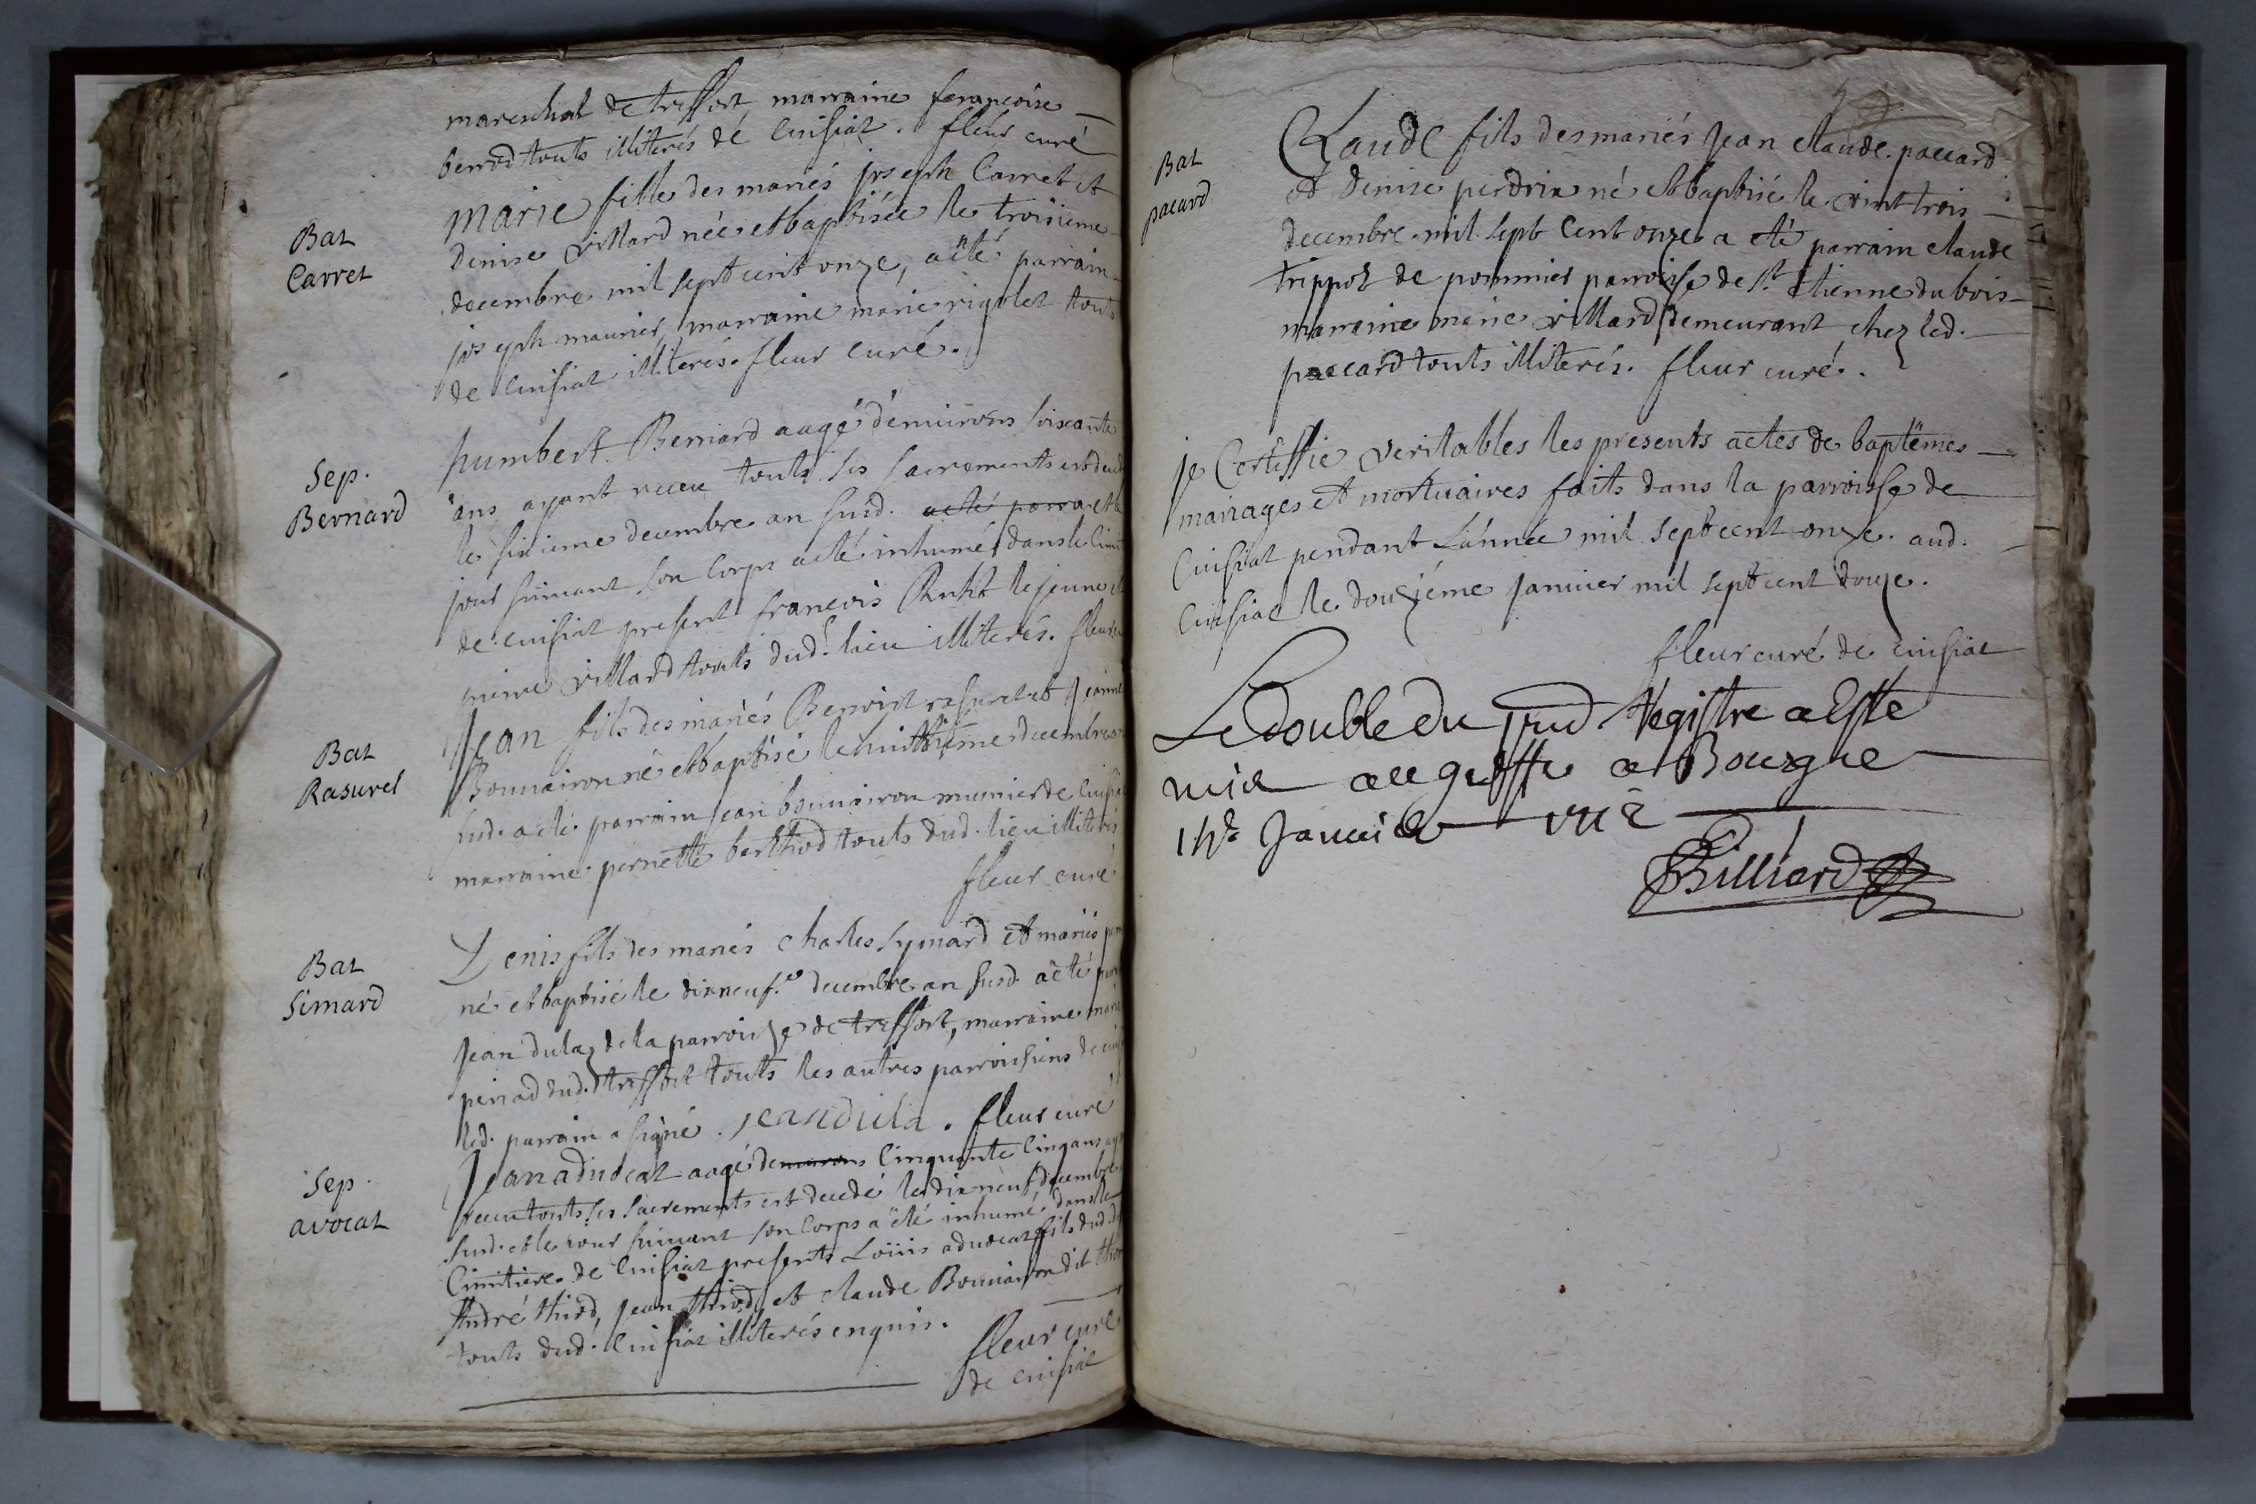 mareschal de treffort marraine francoise
berrod touts illiterés de Cuisiat. fleur curé
Bat
Carret
Marie fille des mariés joseph Carret et
Denise villard née et baptisée le troisieme
decembre mil sept cent onze, a eté parrain
joseph maurier marraine marie rigolet touts
de Cuisiat illiterés. fleur curé.
Sep.
Bernard
humbert Bernard aagé d'environs soixante
ans, ayant receu touts ses sacrements est decedé
le sixieme decembre an susd. a eté parra et le
jour suivant son Corps a eté inhumé dans le
de Cuisiat present francois le jeune et
villard touts dud. lieu illiterés. fleur
Bat
Rasurel
Jean fils des mariés Benoist rasurel et Jeanne
Bonnairon né et baptisé le huittieme decembre
susd. a eté parrain jean bonnairon munier de Cuisiat
marraine pernette berthod touts dud. lieu illiterés
fleur curé
Bat
Simard
Denis fils des mariés Charles symard et
né et baptisé le dixneuf.e decembre an susd. a eté
Jean dulaz de la parroisse de treffort, marraine marie
perrad dud. treffort touts les autres parroissiens de
led. parrain a signé. jeandula. fleur curé
Sep.
avocat
Jean advocat aagé de environs Cinquante Cinq ans
receu touts ses sacrements est decedé le dixneuf decembre
susd. et le jour suivant son Corps a eté inhumé dans le
Cimitiere de Cuisiat presents Loüis advocat fils dud.
André thiod, jean thiod, et claude Bonnairon dit
touts dud. Cuisiat illiterés enquis.
fleur curé
de Cuisiat
Bat
pacard
Claude fils des mariés Jean claude paccard
et Denise perdrix né et baptisé le vint trois
decembre mil sept Cent onze a eté parrain claude
trippoz de pommier parroisse de St. Etienne du bois
marraine marie villard demeurant chez led.
paccard touts illiterés. fleur curé.
je Certiffie veritables les presents actes de baptëmes
mariages et mortuaires faits dans la parroisse de
Cuisiat pendant L'année mil sept cent onze. aud.
Cuisiat le douziéme janvier mil sept cent douze.
fleur curé de Cuisiat
Le double du pnd Registre a Esté
mis au greffe a Bourg le
Janvier 1712
Billiard